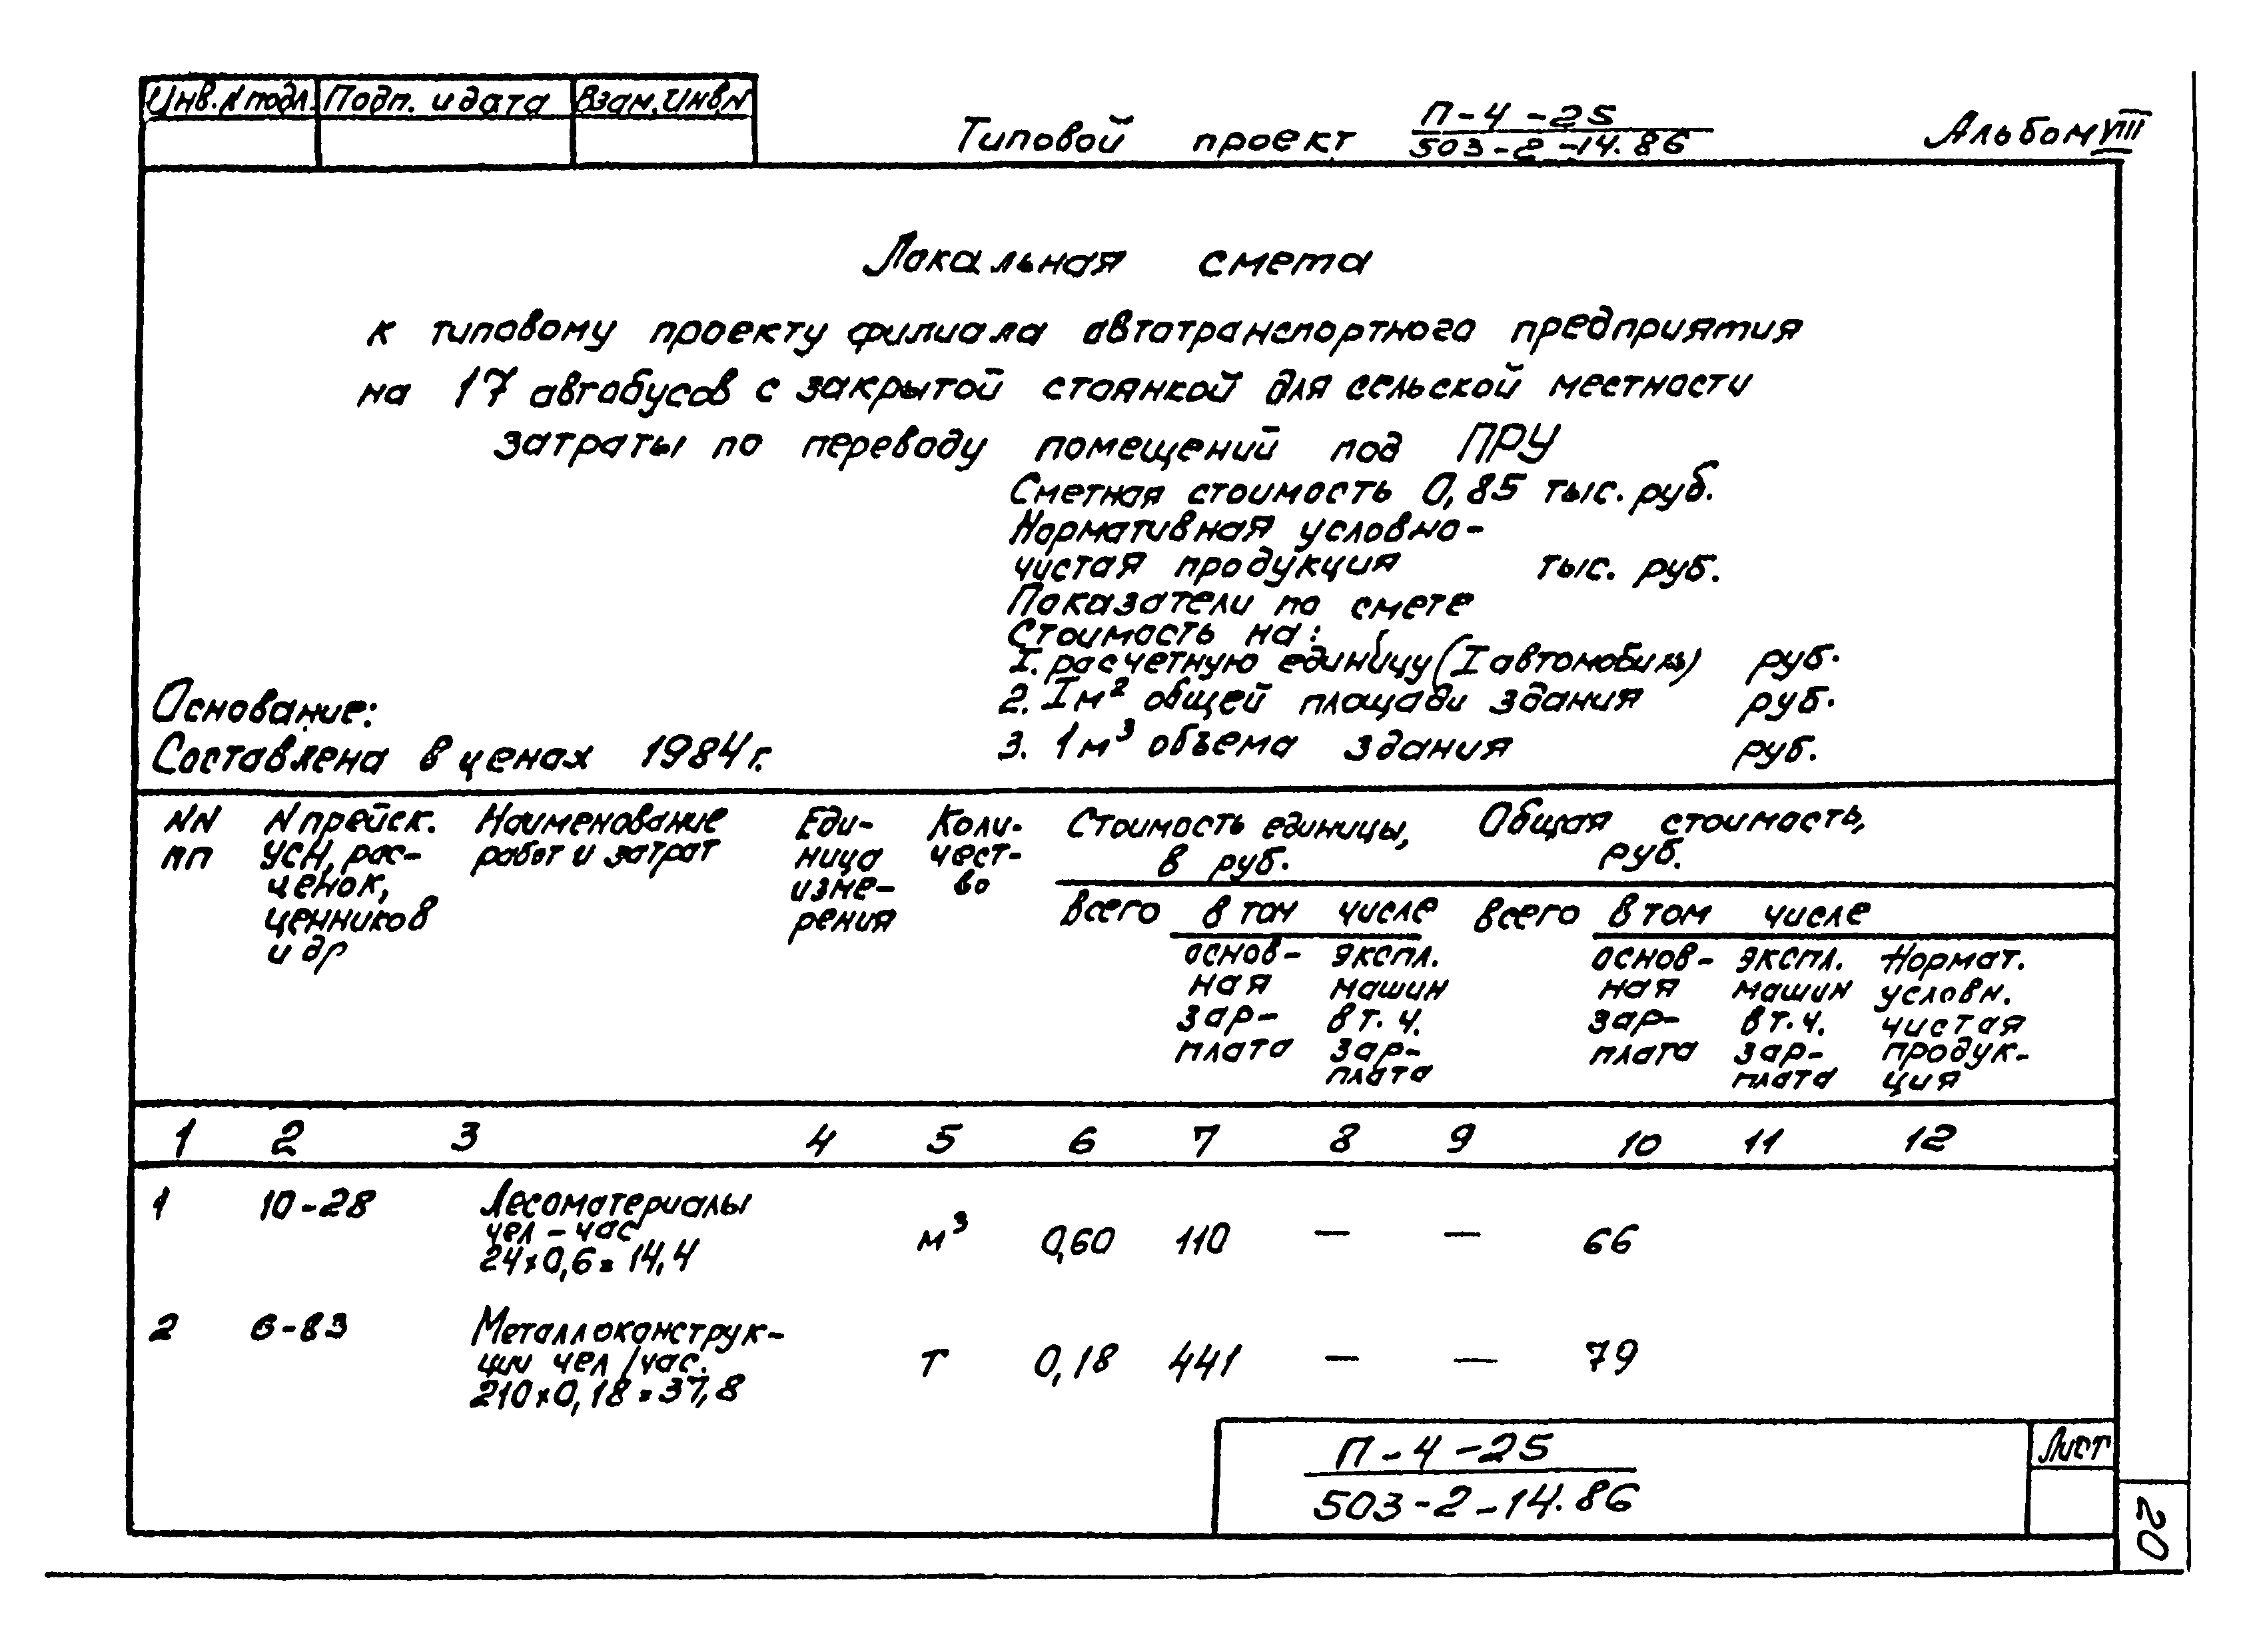 Инв. N подл. Подп. и дата Взам. Инв. N
Типовой проект П-4-25
503-2-14.86
Альбом VIII
Локальная смета
к типовому проекту филиала автотранспортного предприятия
на 17 автобусов с закрытой стоянкой для сельской местности
затраты по переводу помещений под ПРУ
Сметная стоимость 0,85 тыс. руб.
Нормативная условно-
чистая продукция тыс. руб.
Показатели по смете
Стоимость на:
I. расчетную единицу (I автомобиль) руб.
2. Iм² общей площади здания руб.
3. 1м³ объема здания руб.
Основание:
Составлена в ценах 1984г.
NN
пп
N прейск.
УСН, рас-
ценок,
ценников
и др
Наименование
работ и затрат
Еди-
ница
изме-
рения
Коли-
чест-
во
Стоимость единицы,
в руб.
Общая стоимость,
руб.
всего в том числе всего в том числе
основ-
ная
зар-
плата
экспл.
машин
в т.ч.
зар-
плата
основ-
ная
зар-
плата
экспл.
машин
в т.ч.
зар-
плата
Нормат.
условн.
чистая
продук-
ция
1 2 3 4 5 6 7 8 9 10 11 12
1 10-28 Лесоматериалы
чел-час
24×0,6=14,4
м³ 0,60 110 — — 66
2 6-83 Металлоконструк-
ции чел/час.
210×0,18=37,8
т 0,18 441 — — 79
П-4-25
503-2-14.86
Лист
20